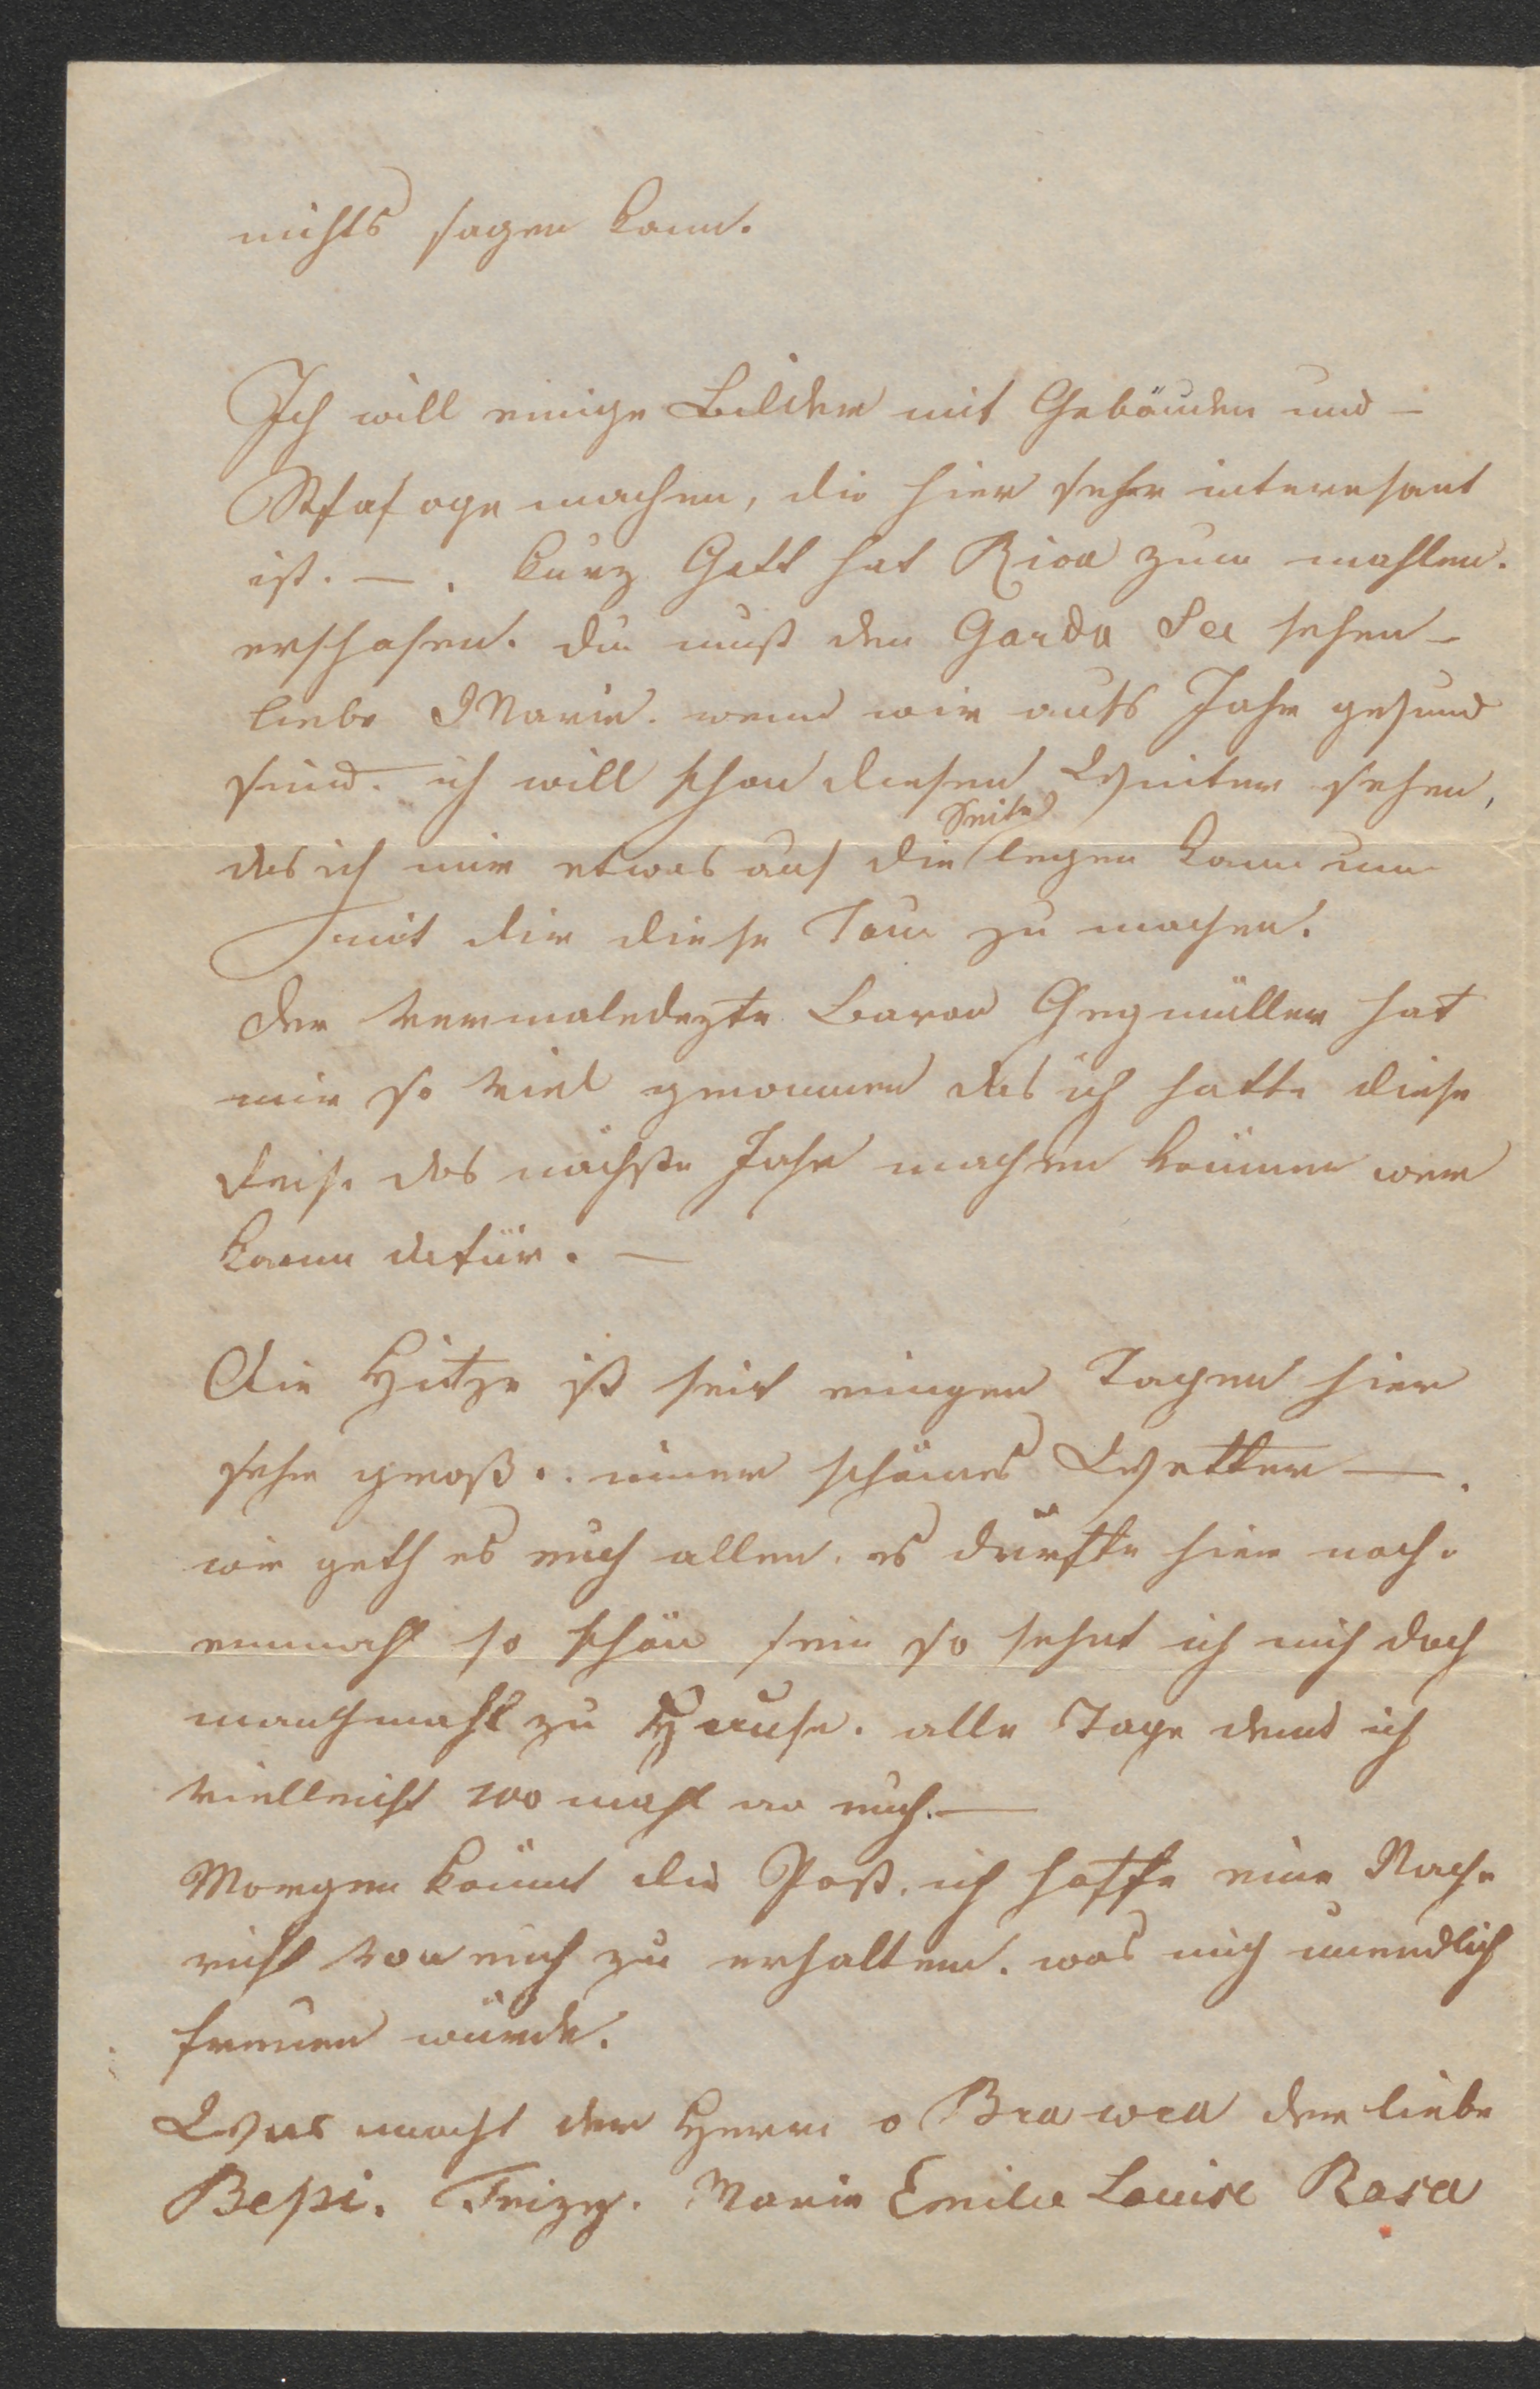 nichts sagen kann.
Ich will einige Bilder mit Gebäuden und –
Stafage machen, die hier sehr interesant
ist. –. kurz Gott hat Riva zum mahlen.
erschafen. du must den Garda See sehen –
liebe Marie. wenn wir aufs Jahr gesund
sind. ich will schon diesen Winter sehen,
das ich mir etwas auf die Seite legen kann um
mit dir diese Tour zu machen.
der vermaledeyte Baron Geymüller hat
mir so viel genommen das ich hatte diese
Reise das nächste Jahr machen können wer
kann dafür. –
Die Hitze ist seit einigen Tagen hier
sehr groß.. immer schönes Wetter –.
wie geth es euch allen. es dürfte hier noch.
einmahl so schön sein so sehnt ich mich doch
manchmahl zu Hause. alle Tage denk ich
vielleicht 100 mahl an euch. –
Morgen kömmt die Post. ich hoffe eine Nach-
richt von euch zu erhalten. was mich unendlich
freuen würde.
Was macht der Herr o Brawea der liebe
Bepi. Frizy. Marie Emilie Louise Rosa